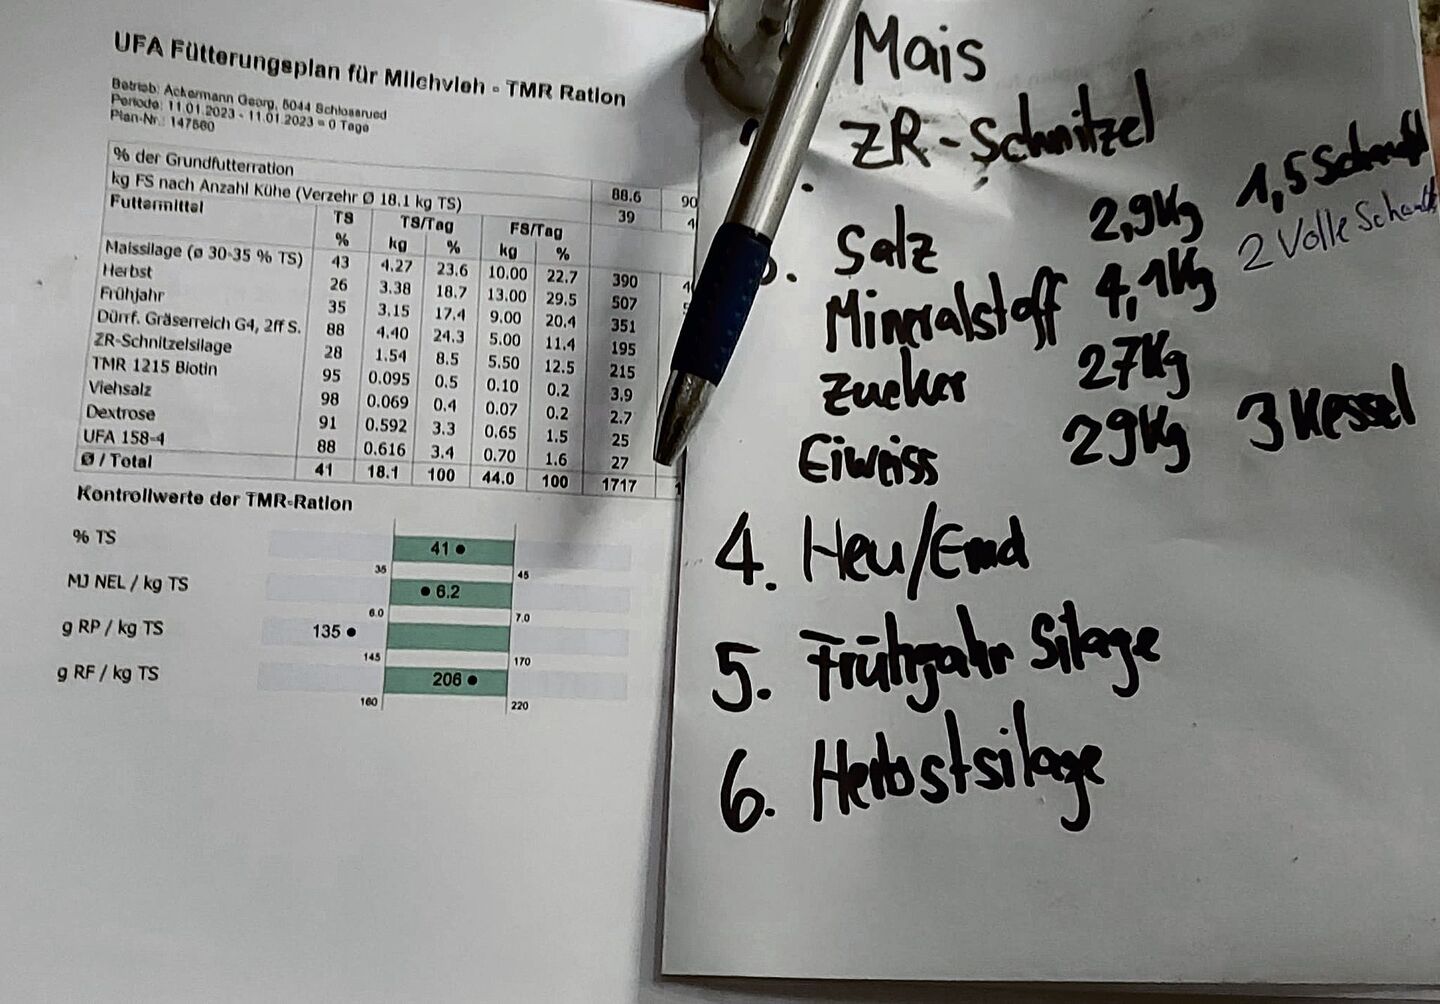 UFA Fütterungsplan für Milchvieh - TMR Ration
Betrieb: Ackermann Georg, 5044 Schlossrued
Periode: 11.01.2023 - 11.01.2023 = 0 Tage
Plan-Nr.: 147560
% der Grundfutterration 88.6 90
kg FS nach Anzahl Kühe (Verzehr Ø 18.1 kg TS) 39 4
Futtermittel TS TS/Tag FS/Tag
% kg % kg %
Maissilage (ø 30-35 % TS) 43 4.27 23.6 10.00 22.7 390 40
Herbst 26 3.38 18.7 13.00 29.5 507
Frühjahr 35 3.15 17.4 9.00 20.4 351
Dürrf. Gräserreich G4, 2ff S. 88 4.40 24.3 5.00 11.4 195
ZR-Schnitzelsilage 28 1.54 8.5 5.50 12.5 215
TMR 1215 Biotin 95 0.095 0.5 0.10 0.2 3.9
Viehsalz 98 0.069 0.4 0.07 0.2 2.7
Dextrose 91 0.592 3.3 0.65 1.5 25
UFA 158-4 88 0.616 3.4 0.70 1.6 27
Ø / Total 41 18.1 100 44.0 100 1717 1
Kontrollwerte der TMR-Ration
% TS 41
35 45
MJ NEL / kg TS 6.2
6.0 7.0
g RP / kg TS 135
145 170
g RF / kg TS 206
160 220
Mais
ZR-Schnitzel
Salz 2,9Kg 1,5 Schaufl
Mineralstoff 4,1Kg 2 Volle Schaufl
Zucker 27Kg
Eiweiss 29Kg 3 Kessel
4. Heu/Emd
5. Frühjahr Silage
6. Herbstsilage